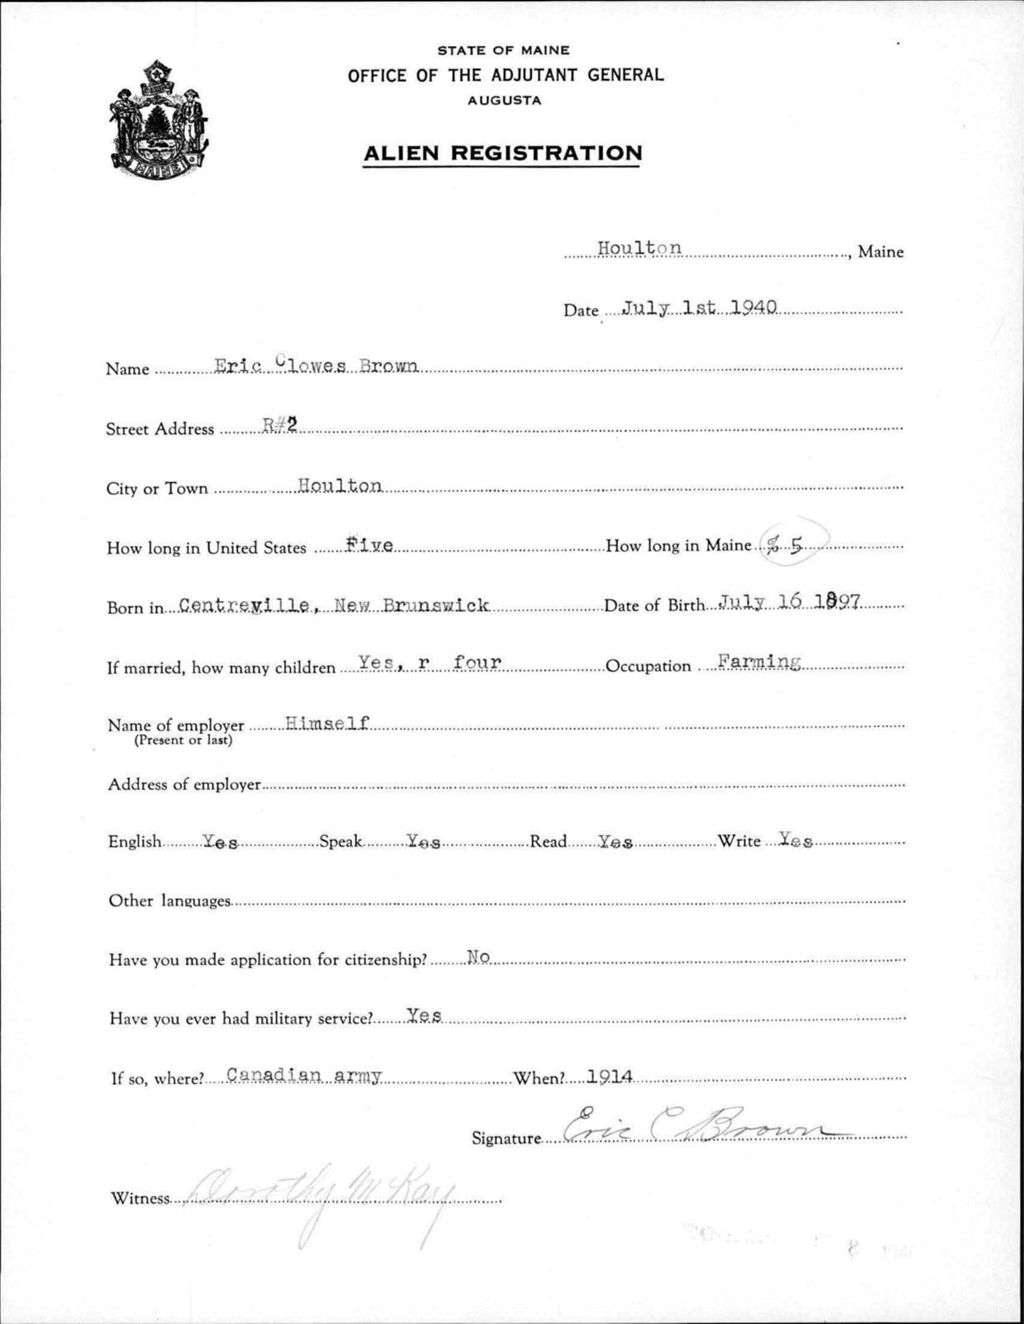 STATE OF MAINE
OFFICE OF THE ADJUTANT GENERAL
AUGUSTA
ALIEN REGISTRATION
MAINE
Houlton, Maine
Date July 1st 1940
Name Eric Clowes Brown
Street Address R#2
City or Town Houlton
How long in United States Five How long in Maine 5
Born in Centreville, New Brunswick Date of Birth July 16 1897
If married, how many children Yes, r four Occupation Farming
Name of employer Himself
(Present or last)
Address of employer
English Yes Speak Yes Read Yes Write Yes
Other languages
Have you made application for citizenship? No
Have you ever had military service? Yes
If so, where? Canadian army When? 1914
Signature Eric C Brown
Witness Dorothy McKay